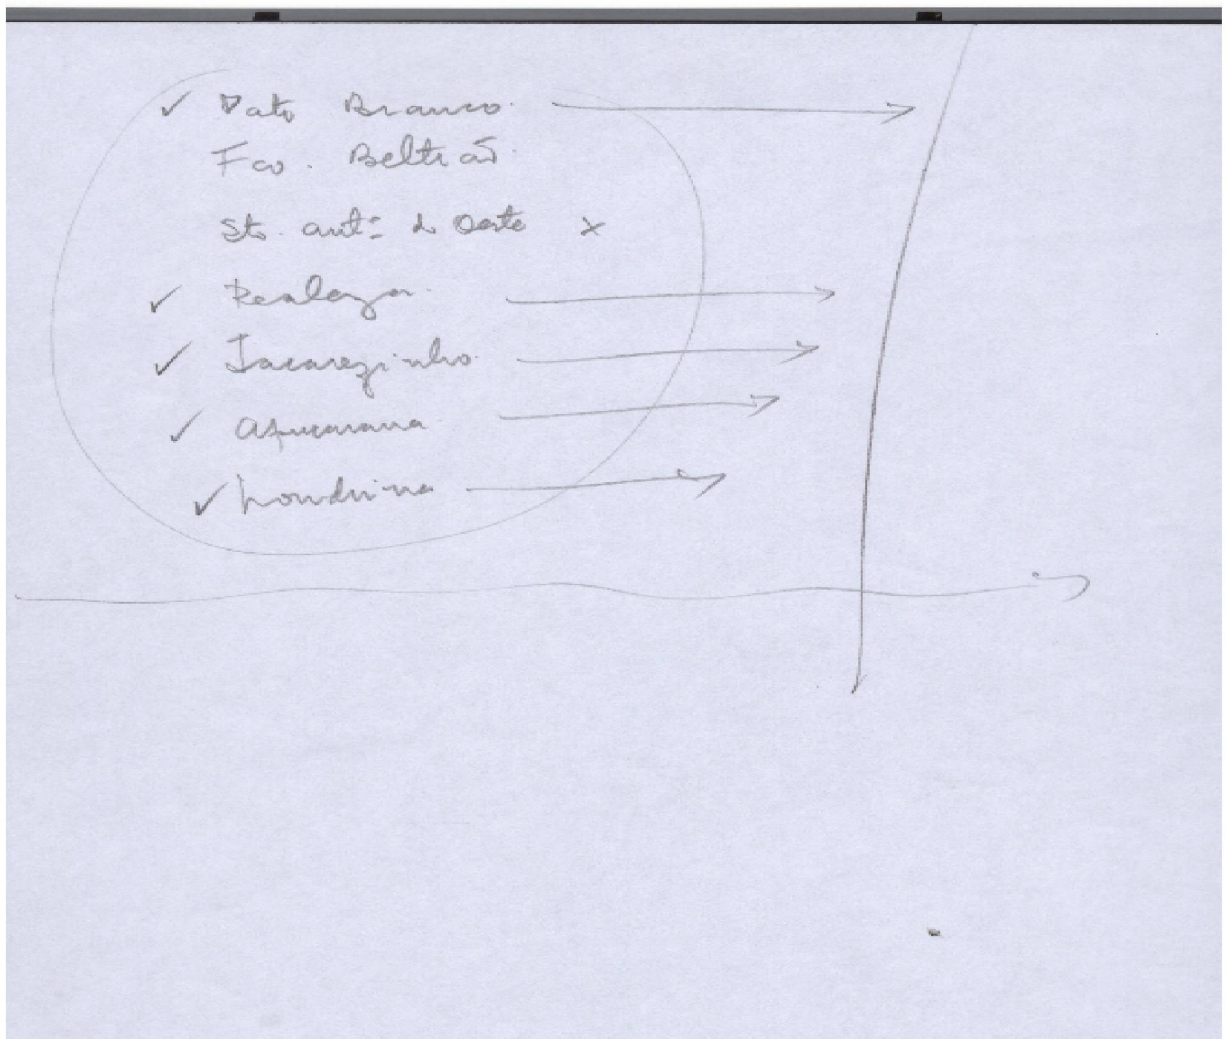 ✓ Pato Branco
Fco. Beltrão
Sto. Antº do Oeste x
✓ Realeza
✓ Jacarezinho
✓ Apucarana
✓ Londrina